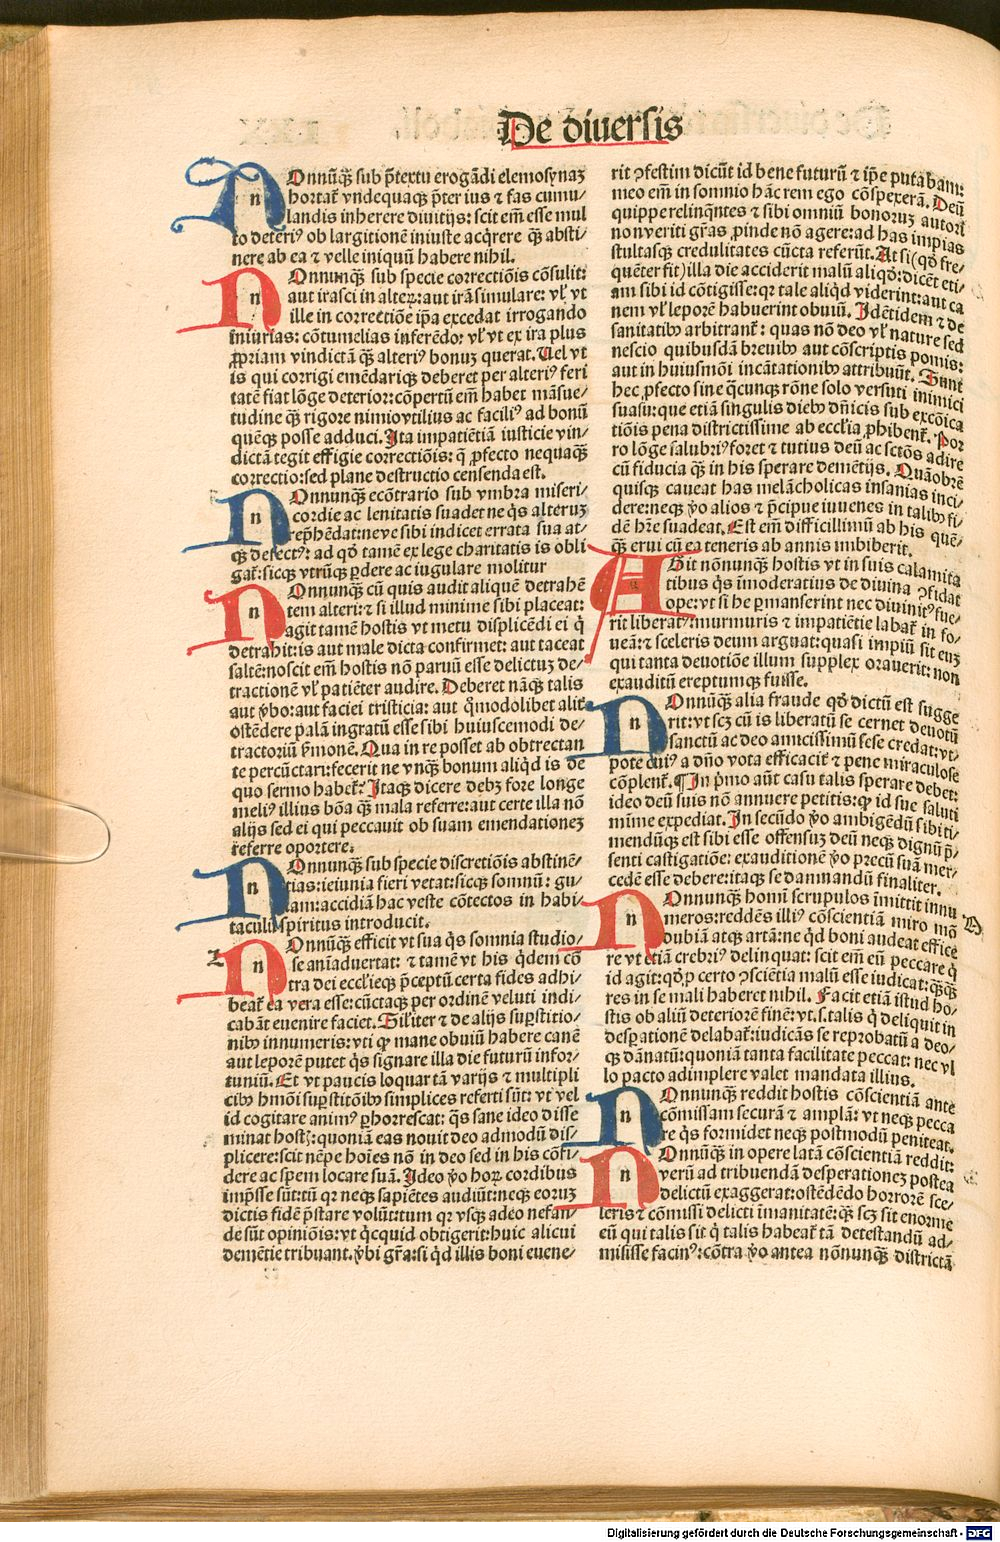 De diuersis
NOnnūqȝ sub p̄textu erogādi elemosynaȝ
hortat᷑ vndequaqȝ p̄ter ius ⁊ fas cumu/
landis inherere diuitijs: scit em̄ esse mul
to deteriꝰ ob largitionē iniuste acq̄rere qȝ absti/
nere ab ea ⁊ velle iniquū habere nihil.
NOnnunqȝ sub specie correctiōis cōsulit:
aut irasci in alteꝝ: aut irā simulare: vl̓ vt
ille in correctiōe ip̄a excedat irrogando
iniurias: cōtumelias inferēdo: vl̓ vt ex ira plus
ꝓpriam vindictā qȝ alteriꝰ bonuȝ querat. Uel vt
is qui corrigi emēdariqȝ deberet per alteriꝰ feri
tatē fiat lōge deterior: cōpertū em̄ habet māsue/
tudine qȝ rigore nimio vtilius ac faciliꝰ ad bonū
quēqȝ posse adduci. Ita impatiētiā iusticie vin/
dictā tegit effigie correctiōis: q̄ ꝓfecto nequaqȝ
correctio: sed plane destructio censenda est.
NOnnunqȝ ecōtrario sub vmbra miseri/
cordie ac lenitatis suadet ne q̄s alteruȝ
rep̄hēdat: neve sibi indicet errata sua at/
qȝ defectꝰ: ad qd̓ tamē ex lege charitatis is obli
gat᷑: sicqȝ vtrūqȝ ꝑdere ac iugulare molitur
NOnnunqȝ cū quis audit aliquē detrahē
tem alteri: ⁊ si illud minime sibi placeat:
agit tamē hostis vt metu displicēdi ei q̄
detrahit: is aut male dicta confirmet: aut taceat
saltē: noscit em̄ hostis nō paruū esse delictuȝ de/
tractionē vl̓ patiēter audire. Deberet nāqȝ talis
aut v̓bo: aut faciei tristicia: aut q̄modolibet alit᷑
ostēdere palā ingratū esse sibi huiuscemodi de/
tractoriū f̓monē. Qua in re posset ab obtrectan
te percūctari: fecerit ne vnqȝ bonum aliqd̓ is de
quo sermo habet᷑: Itaqȝ dicere debȝ fore longe
meliꝰ illius bōa qȝ mala referre: aut certe illa nō
alijs sed ei qui peccauit ob suam emendationeȝ
referre oportere.
NOnnunqȝ sub specie discretiōis abstinē/
tias: ieiunia fieri vetat: sicqȝ somnū: gu/
lam: accidiā hac veste cōtectos in habi/
taculū spiritus introducit.
NOnnūqȝ efficit vt sua q̄s somnia studio/
se aīaduertat: ⁊ tamē vt his q̄dem cō
tra dei ecclieqȝ p̄ceptū certa fides adhi/
beat᷑ ea vera esse: cūctaqȝ per ordinē veluti indi/
cabāt euenire faciet. Sil̓iter ⁊ de alijs suꝑstitio/
nibꝰ innumeris: vti qꝫ mane obuiū habere canē
aut leporē putet q̄s signare illa die futurū infor/
tuniū. Et vt paucis loquar tā varijs ⁊ multipli
cibꝰ hmōi suꝑstitōibꝰ simplices referti sūt: vt vel
id cogitare animꝰ ꝑhorrescat: q̄s sane ideo disse
minat hostis: quoniā eas nouit deo admodū dis/
plicere: scit nēpe hoīes nō in deo sed in his cōfi/
dere ac spem locare suā. Ideo v̓o hoꝝ cordibus
imp̄sse sūt: tū qꝛ neqȝ sapiētes audiūt: neqȝ eoruȝ
dictis fidē p̄stare volūt: tum qꝛ vsqȝ adeo nefan/
de sūt opiniōis: vt q̄cquid obtigerit: huic alicui
demētie tribuant. v̓bi gr̄a: si qd̓ illis boni euene/
rit ꝯfestim dicūt id bene futurū ⁊ ip̄e putabam:
meo em̄ in somnio hāc rem ego cōspexerā. Deū
quippe relinq̄ntes ⁊ sibi omniū bonoruȝ autorē
non veriti gr̄as ꝓinde nō agere: ad has impias
stultasqȝ credulitates cūcta referūt. At si (qd̓ fre/
quēter fit) illa die acciderit malū aliqd̓: dicēt eti/
am sibi id cōtigisse: qꝛ tale aliqd̓ viderint: aut ca
nem vl̓ leporē habuerint obuiū. Idētidem ⁊ de
sanitatibꝰ arbitrant᷑: quas nō deo vl̓ nature sed
nescio quibusdā breuibꝰ aut cōscriptis pomis:
aut in huiusmōi incātationibꝰ attribuūt. Sunt
hec ꝓfecto sine q̄cunqȝ rōne solo versuti inimici
suasu: que etiā singulis diebꝰ dn̄icis sub excōica
tiōis pena districtissime ab ecclia ꝓhibent᷑. Por
ro lōge salubriꝰ foret ⁊ tutius deū ac sctōs adire
cū fiducia qȝ in his sperare demētijs. Quāobrē
quisqȝ caueat has melācholicas insanias inci/
dere: neqȝ v̓o alios ⁊ p̄cipue iuuenes in talibꝰ fi/
dē hr̄e suadeat. Est em̄ difficillimū ab his quē/
qȝ erui cū ea teneris ab annis imbiberit.
AGit nōnunqȝ hostis vt in suis calamita
tibus q̄s īmoderatius de diuina ꝯfidat
ope: vt si he ꝑmanserint nec diuinitꝰ fue/
rit liberatꝰ: murmuris ⁊ impatiētie labat᷑ in fo/
ueā: ⁊ sceleris deum arguat: quasi impiū sit euȝ
qui tanta deuotiōe illum supplex orauerit: non
exauditū ereptumqȝ fuisse.
NOnnūqȝ alia fraude qd̓ dictū est sugge
rit: vt scȝ cū is liberatū se cernet deuotū
sanctū ac deo amicissimū sese credat: vt/
pote cuiꝰ a dn̄o vota efficacit᷑ ⁊ pene miraculose
cōplent᷑. ¶In p̓mo aūt casu talis sperare debet:
ideo deū suis nō annuere petitis: qꝫ id sue saluti
mīme expediat. In secūdo v̓o ambigēdū sibi ti/
mendūqȝ est sibi esse offensuȝ deū neqȝ dignū p̄/
senti castigatiōe: exauditionē v̓o precū suā mer/
cedē esse debere: itaqȝ se damnandū finaliter.
NOnnunqȝ homī scrupulos īmittit innu
meros: reddēs illiꝰ cōscientiā miro mō
dubiā atqȝ artā: ne qd̓ boni audeat effice
re vt etiā crebriꝰ delinquat: scit em̄ eū peccare q̄
id agit: qd̓ ꝓ certo ꝯsciētia malū esse iudicat: qȝqȝ
res in se mali haberet nihil. Facit etiā istud ho/
stis ob aliū deteriorē finē: vt .s. talis q̄ deliquit in
desꝑationē delabat᷑: iudicās se reprobatū a deo/
qȝ dānatū: quoniā tanta facilitate peccat: nec vl
lo pacto adimplere valet mandata illius.
NOnnunqȝ reddit hostis cōscientiā ante
cōmissam securā ⁊ amplā: vt neqȝ pecca
re q̄s formidet neqȝ postmodū peniteat.
NOnnūqȝ in opere latā cōscientiā reddit:
verū ad tribuendā desperationeȝ postea
delictū exaggerat: ostēdēdo horrorē sce/
leris ⁊ cōmissi delicti īmanitatē: qȝ scȝ sit enorme
eū qui talis sit q̄ talis habeat᷑ tā detestandū ad/
misisse facinꝰ: cōtra v̓o antea nōnunqȝ districtā
Digitalisierung gefördert durch die Deutsche Forschungsgemeinschaft - DFG